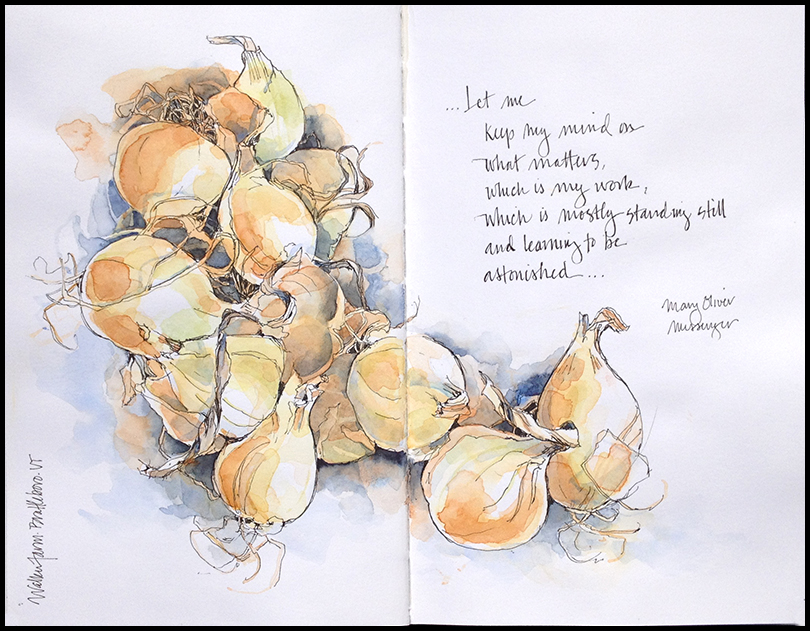 ...Let me
keep my mind on
what matters,
which is my work,
which is mostly standing still
and learning to be
astonished...
Mary Oliver
Messenger
Walker Farm · Brattleboro · VT